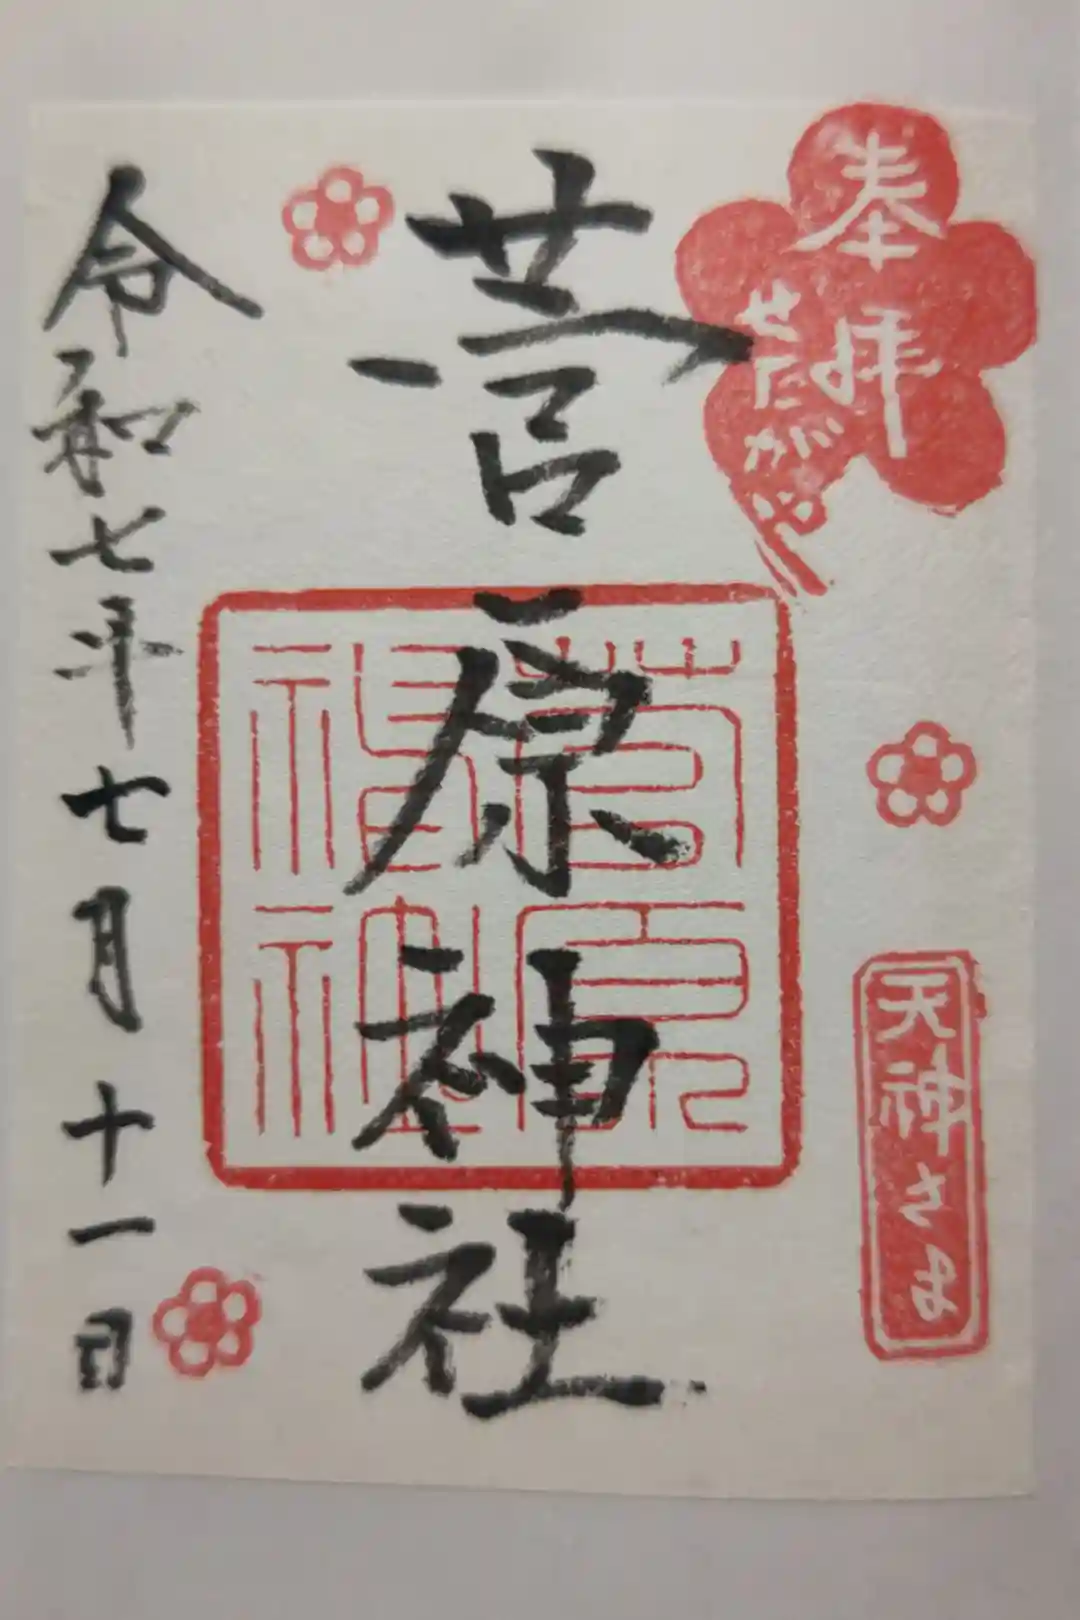 奉拝
せたがや
天神さま
菅原神社
菅原神社
令和七年七月十一日